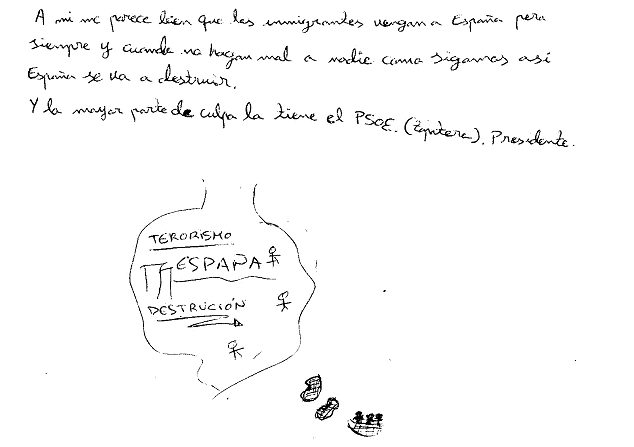 A mi me parece bien que los inmigrantes vengan a España pero
siempre y cuando no hagan mal a nadie como sigamos así
España se va a destruir.
Y la mayor parte de culpa la tiene el PSOE. (Zapatero). Presidente.
TERORISMO
ESPAÑA
DESTRUCIÓN